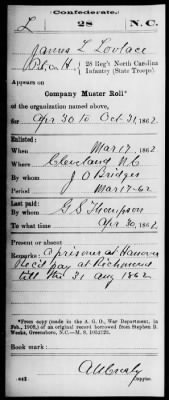 Confederate.
L 28 N.C.
James L Lovlace
Pvt, Co. H., 28 Reg't North Carolina
Infantry (State Troops)
Appears on
Company Muster Roll*
of the organization named above,
for Apr 30 to Oct 31, 1862.
Enlisted:
When Mar 17, 1862
Where Cleveland N.C
By whom J O Bridges
Period Mar 17-62
Last paid:
By whom G S Thompson
To what time Apr 30, 1862
Present or absent
Remarks: A prisoner at Hanover
Rec'd pay at Richmond
till the 31 Aug 1862
*From copy (made in the A. G. O., War Department, in
Feb., 1909,) of an original record borrowed from Stephen B.
Weeks, Greensboro, N.C.—M. S.
Book mark:
Copyist.